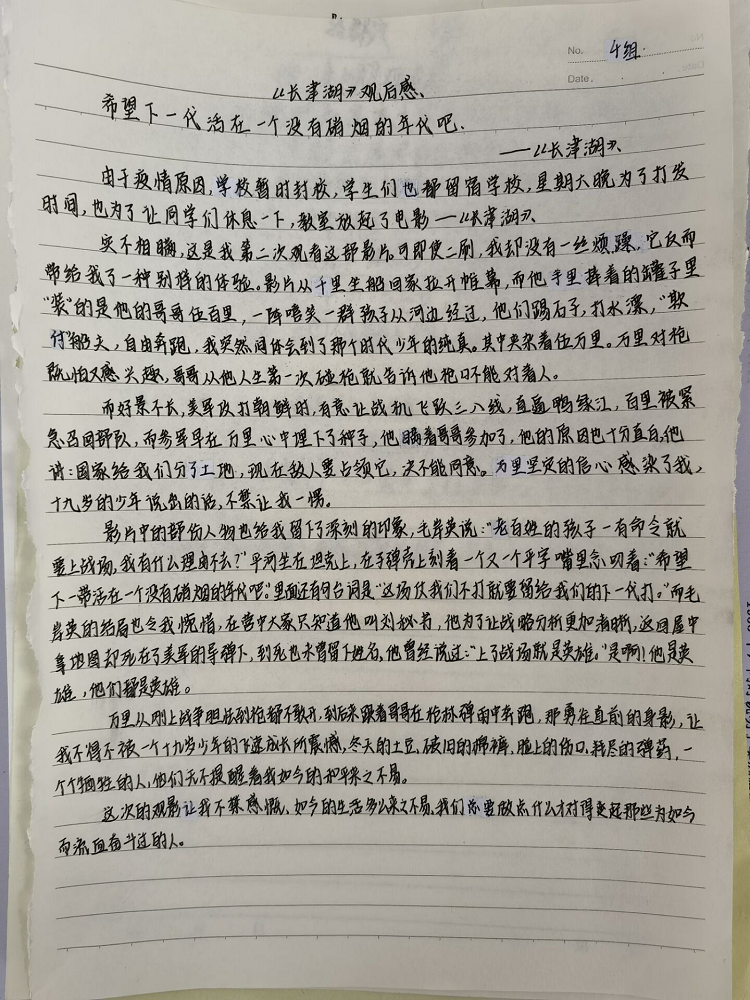 No. 4组.
Date.
《长津湖》观后感、
希望下一代活在一个没有硝烟的年代吧.
——《长津湖》、
由于疫情原因,学校暂时封校,学生们也都留宿学校,星期六晚为了打发
时间,也为了让同学们休息一下,教室放起了电影——《长津湖》、
实不相瞒,这是我第二次观看这部影片。可即使二刷,我却没有一丝烦躁,它反而
带给我了一种别样的体验。影片从千里坐船回家拉开帷幕,而他手里捧着的罐子里
"装"的是他的哥哥伍百里,一阵嘻笑一群孩子从河边经过,他们踢石子,打水漂,"欺
付"船夫,自由奔跑,我突然间体会到了那个时代少年的纯真。其中夹杂着伍万里。万里对枪
既怕又感兴趣,哥哥从他人生第一次碰枪就告诉他枪口不能对着人。
而好景不长,美军攻打朝鲜时,有意让战机飞跃三八线,直逼鸭绿江,百里被紧
急召回部队,而参军早在万里心中埋下了种子,他瞒着哥哥参加了,他的原因也十分直白,他
讲:国家给我们分了土地,现在敌人要占领它,决不能同意。万里坚定的信心感染了我,
十九岁的少年说出的话,不禁让我一愣。
影片中的部份人物也给我留下了深刻的印象,毛岸英说:"老百姓的孩子一有命令就
要上战场,我有什么理由不去?"平河坐在坦克上,在子弹壳上刻着一个又一个平字嘴里念叨着:"希望
下一带活在一个没有硝烟的年代吧。"里面还有句台词是"这场仗我们不打就要留给我们的下一代打。"而毛
岸英的结局也令我惋惜,在营中大家只知道他叫刘秘书,他为了让战略分析更加清晰,返回屋中
拿地图却死在了美军的导弹下,到死也未曾留下姓名,他曾经说过:"上了战场就是英雄。"是啊!他是英
雄,他们都是英雄。
万里从刚上战争胆怯到枪都不敢开,到后来跟着哥哥在枪林弹雨中奔跑,那勇往直前的身影,让
我不得不被一个十九岁少年的飞速成长所震憾,冬天的土豆,破旧的棉裤,脸上的伤口,耗尽的弹药,一
个个牺牲的人,他们无不提醒着我如今的和平来之不易。
这次的观影让我不禁感慨,如今的生活多么来之不易,我们总要做点什么才对得起那些为如今
而流血奋斗过的人。